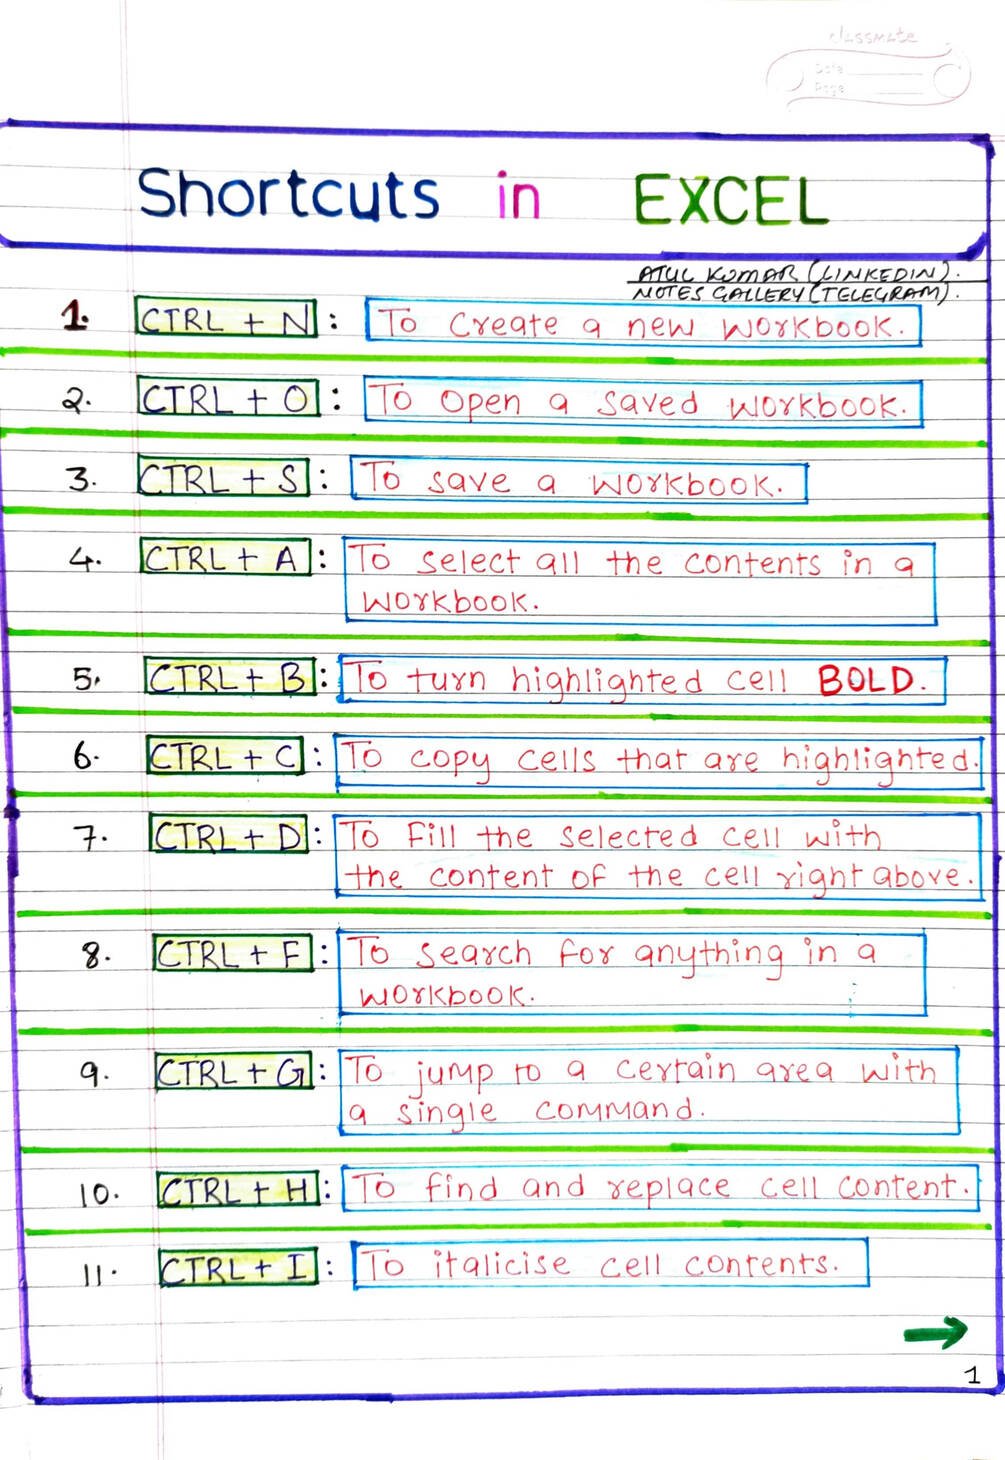 classmate
Date
Page
Shortcuts in EXCEL
ATUL KUMAR (LINKEDIN).
NOTES GALLERY (TELEGRAM).
1. CTRL + N : To Create a new workbook.
2. CTRL + O : To open a saved workbook.
3. CTRL + S : To save a workbook.
4. CTRL + A : To select all the contents in a
workbook.
5. CTRL + B : To turn highlighted cell BOLD.
6. CTRL + C : To copy cells that are highlighted.
7. CTRL + D : To Fill the selected cell with
the content of the cell right above.
8. CTRL + F : To search for anything in a
workbook.
9. CTRL + G : To jump to a certain area with
a single command.
10. CTRL + H : To find and replace cell content.
11. CTRL + I : To italicise cell contents.
1